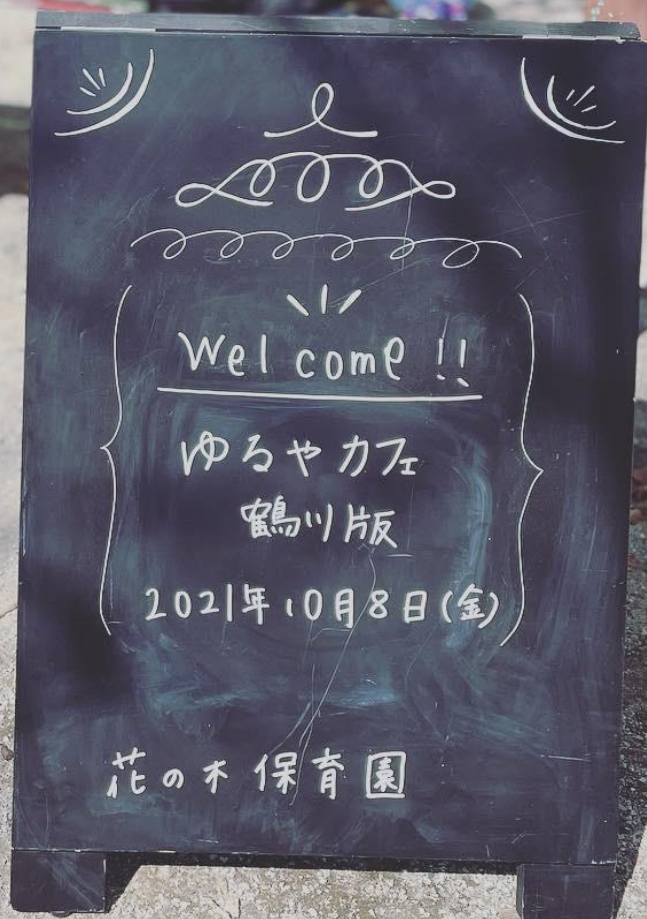 Welcome!!
ゆるやカフェ
鶴川版
2021年10月8日(金)
花の木保育園